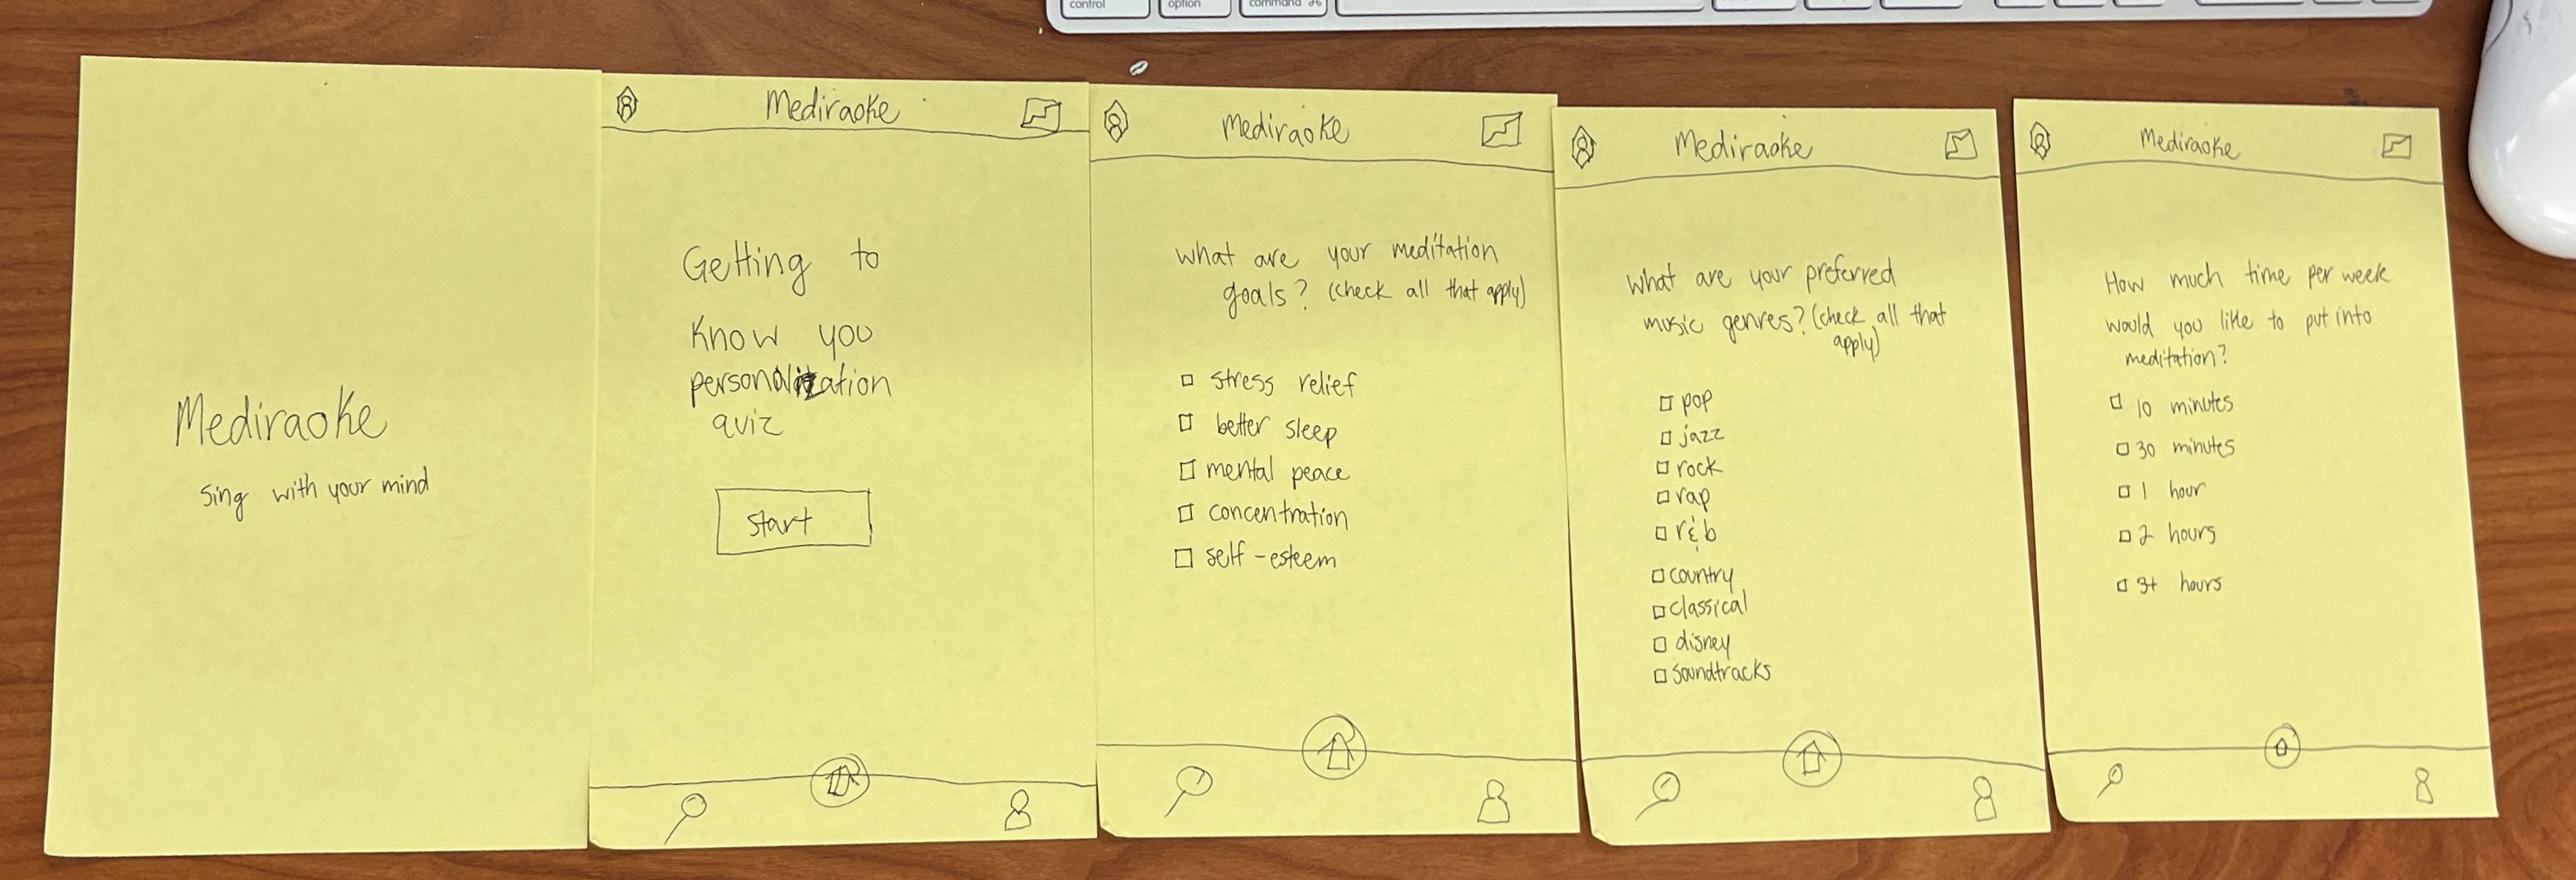 control
option
command ⌘
Mediraoke
sing with your mind
Mediraoke
Getting to
Know you
personalization
quiz
start
Mediraoke
what are your meditation
goals? (check all that apply)
stress relief
better sleep
mental peace
concentration
self-esteem
Mediraoke
what are your preferred
music genres? (check all that
apply)
pop
jazz
rock
rap
r&b
country
classical
disney
soundtracks
Mediraoke
How much time per week
would you like to put into
meditation?
10 minutes
30 minutes
1 hour
2 hours
3+ hours